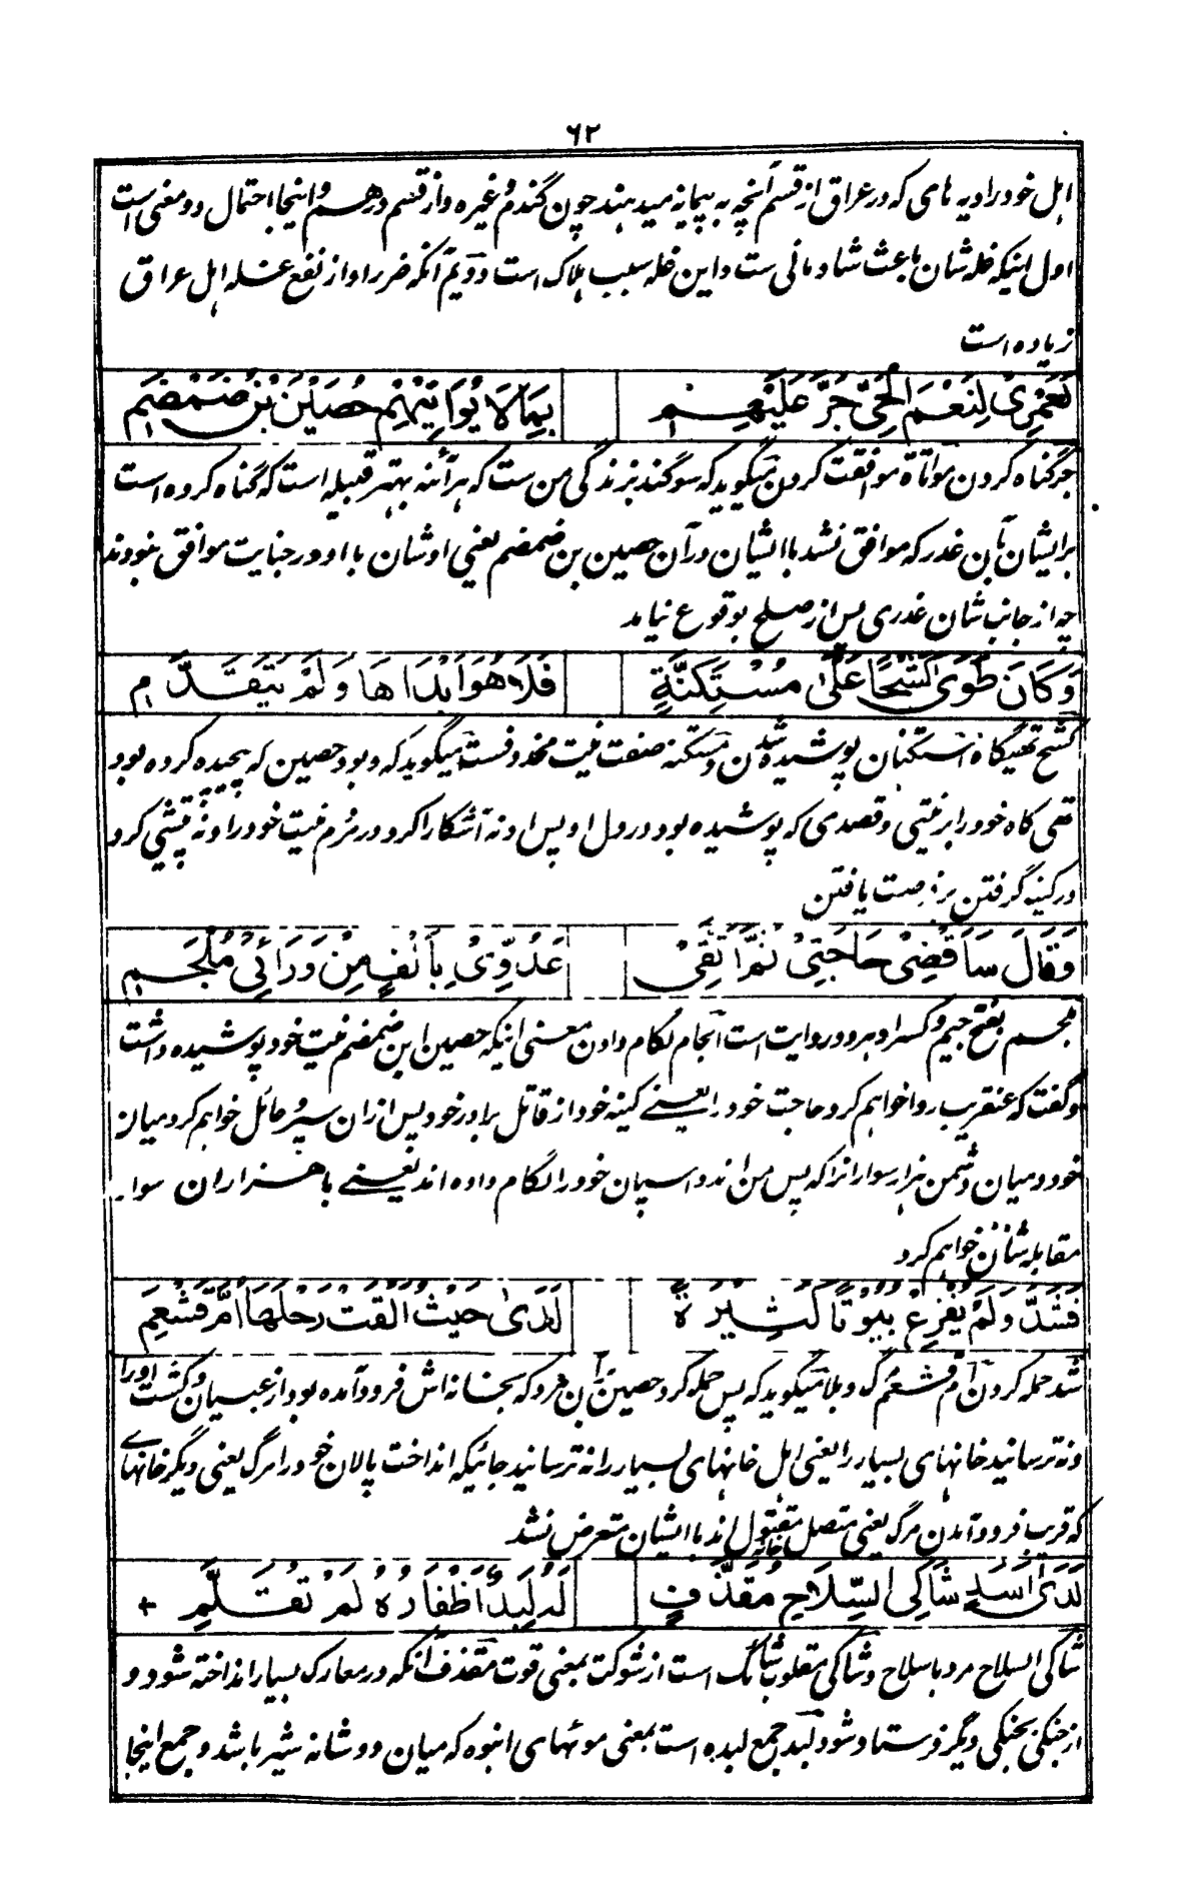 ۶۲
اهل خود را دیه های که در عراق از قسم آنچه به پیمایه میدهند چون گندم و غیره و از قسم درهم و اینجا احتمال دو معنی است
اول اینکه غله شان باعث شادمانی ست و این غله سبب هلاک است دویم آنکه ضرر او از نفع غله اهل عراق
زیاده است
لَعَمْرِیْ لِنَعْمَ الْحَیِّ جَرَّ عَلَیْهِمْ بِمَا لَا یُوَاتِیْهِمْ حُصَیْنُ بْنُ ضَمْضَمِ
جر گناه کردن مواتاة موافقت کردن میگوید که سوگند بزندگی من ست که هر آئنه بهتر قبیله است که گناه کرده است
بر ایشان بآن غدر که موافق نشد با ایشان در آن حصین بن ضمضم یعنی اوشان با او در جنایت موافق نبودند
چه از جانب شان غدری پس از صلح بوقوع نیامد
وَکَانَ طَوَیٰ کَشْحًا عَلَیٰ مُسْتَکِنَّةٍ فَلَا هُوَ اَبْدَاهَا وَلَمْ یَتَقَدَّمِ
کشح تهیگاه استکنان پوشیده شدن و مستکنه صفت نیت محذوفست میگوید که و بود حصین که پیچیده کرده بود
تهی گاه خود را بر نیتی و قصدی که پوشیده بود در دل او پس او نه آشکارا کرد در مردم نیت خود را و نه پیشی کرد
در کینه گرفتن بر فرصت یافتن
وَقَالَ سَاَقْضِیْ حَاجَتِیْ ثُمَّ اَتَّقِیْ عَدُوِّیْ بِاَلْفٍ مِنْ وَرَائِیْ مُلْجَمِ
ملجم بفتح جیم و کسر او هر دو روایت است الجام لگام دادن معنی اینکه حصین ابن ضمضم نیت خود پوشیده داشت
و گفت که عنقریب روا خواهم کرد حاجت خود را یعنے کینه خود از قاتل برادر خود پس ازان سپر حائل خواهم کرد میان
خود و میان دشمن هزار سوار انرا که پس من اند و اسپان خود را لگام داده اند یعنے با هزاران سوار
مقابله شان خواهم کرد
فَشَدَّ وَلَمْ یُفْزِعْ بُیُوْتًا کَثِیْرَةً لَدَیٰ حَیْثُ اَلْقَتْ رَحْلَهَا اُمُّ قَشْعَمِ
شد حمله کردن ام قشعم مرگ و بلا میگوید که پس حمله کرد حصین بآن مرد که بخانه اش فرود آمده بود از عبسیان و کشت او را
و نه ترسانید خانهای بسیار را یعنی اهل خانهای بسیار را نه ترسانید جائیکه انداخت پالان خود را مرگ یعنی دیگر خانهاے
که قریب فرود آمدن مرگ یعنی متصل خانه مقتول اند با ایشان متعرض نشد
لَدَیٰ اَسَدٍ شَاکِی السِّلَاحِ مُقَذَّفٍ لَهُ لِبَدٌ اَظْفَارُهُ لَمْ تُقَلَّمِ +
شاکی السلاح مرد با سلاح و شاکی مقلوب شائک است از شوکت بمعنی قوت مقذف آنکه در معارک بسیار انداخته شود و
از جنگی بجنگی دیگر فرستاده شود لبد جمع لبده است بمعنی موئهای انبوه که میان دو شانه شیر باشد و جمع اینجا